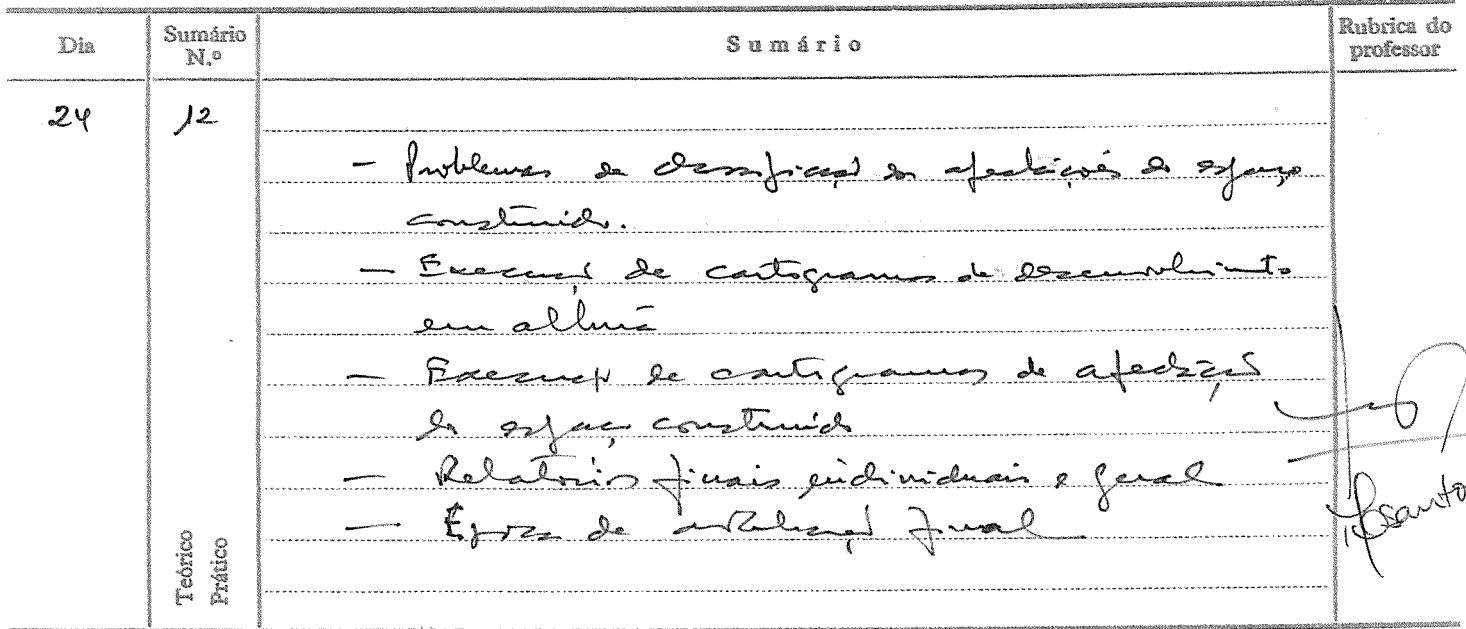 Dia
Sumário
N.º
Sumário
Rubrica do
professor
24
12
- Problemas de classificação das afectações do espaço
construído.
- Execução de cartogramas de desenvolvimento
em altura
- Execução de cartogramas de afectação
do espaço construído
- Relatórios finais individuais e geral
- Época de final
Teórico
Prático